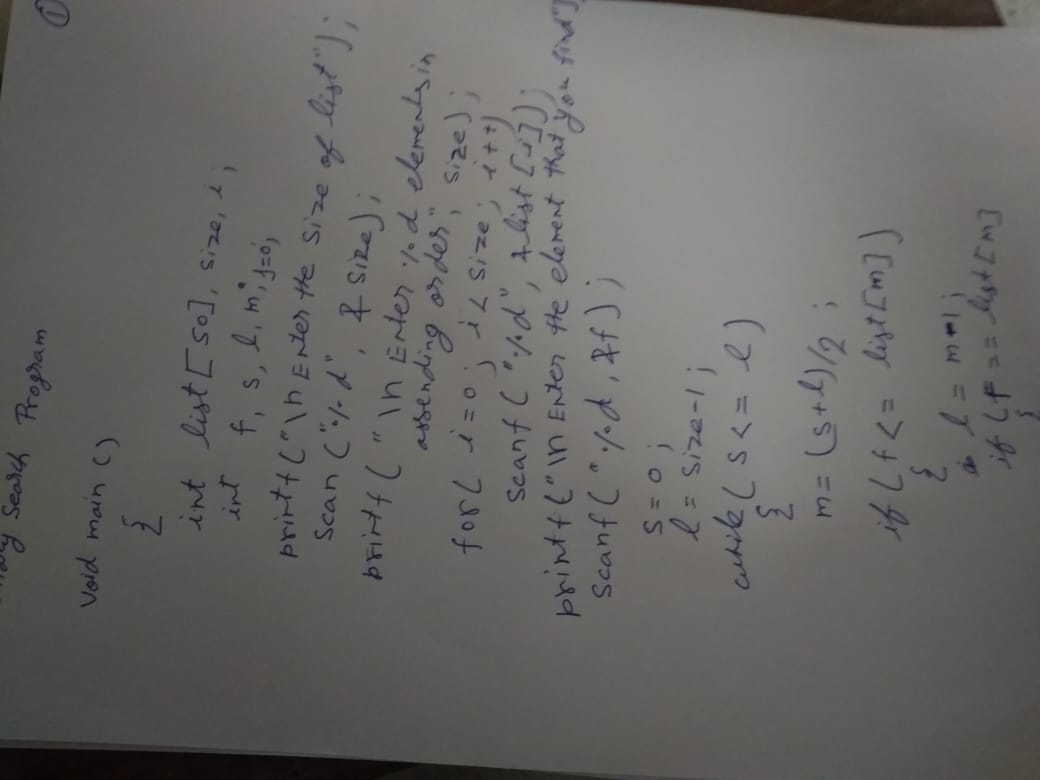 ①
Search Program
void main ()
{
int list [50], size, i;
int f, s, l, m, j=0;
printf ("\n Enter the size of list");
scan ("%d", & size);
printf (" \n Enter %d elements in
assending order", size);
for( i=0; i< size; i++)
scanf ("%d", & list [i]);
printf ("\n Enter the element that you find")
scanf ("%d, &f);
s=0;
l = size-1;
while (s<= l)
{
m= (s+l)/2 ;
if ( f <= list[m])
{
l = m-1;
if (f == list [m]
{